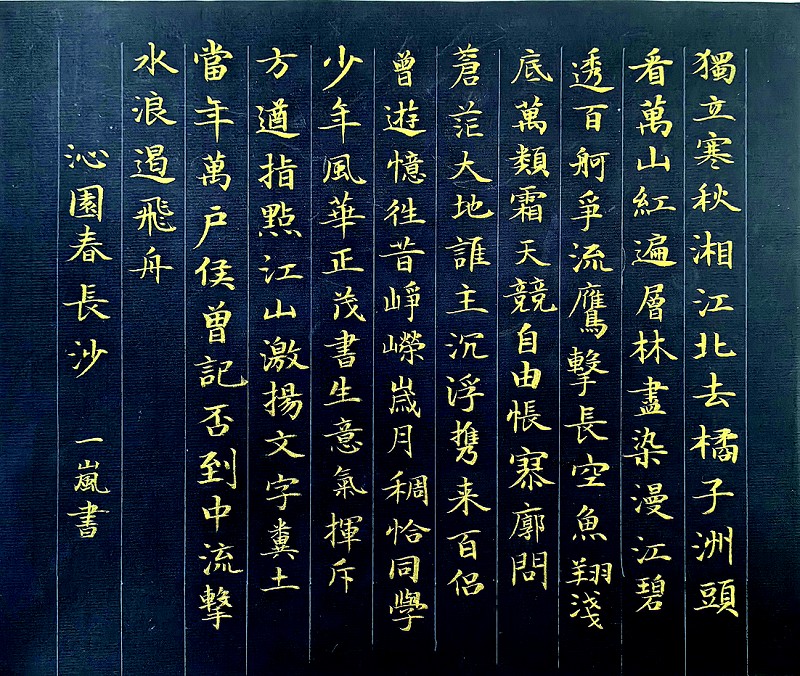 獨立寒秋湘江北去橘子洲頭
看萬山紅遍層林盡染漫江碧
透百舸爭流鷹擊長空魚翔淺
底萬類霜天競自由悵寥廓問
蒼茫大地誰主沉浮携来百侶
曾遊憶往昔崢嶸歲月稠恰同學
少年風華正茂書生意氣揮斥
方遒指點江山激揚文字糞土
當年萬户侯曾記否到中流擊
水浪遏飛舟
沁園春長沙 一嵐書